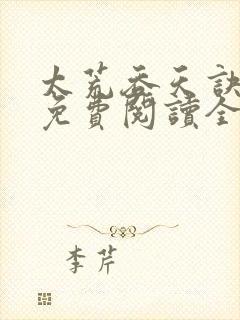 大荒吞天訣
免費閱讀全
李芹